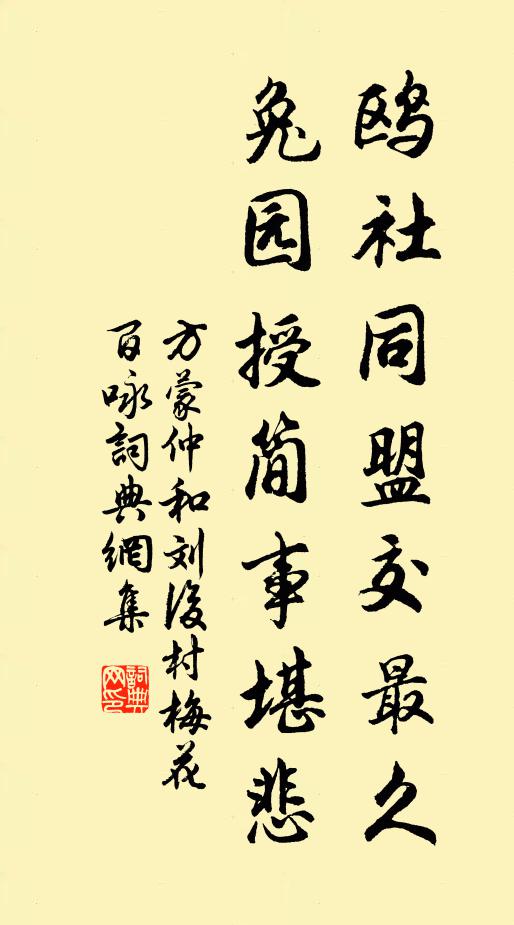 鸥社同盟交最久
兔园授简事堪悲
方蒙仲和刘後村梅花
百咏詞典網集
詞典
网印